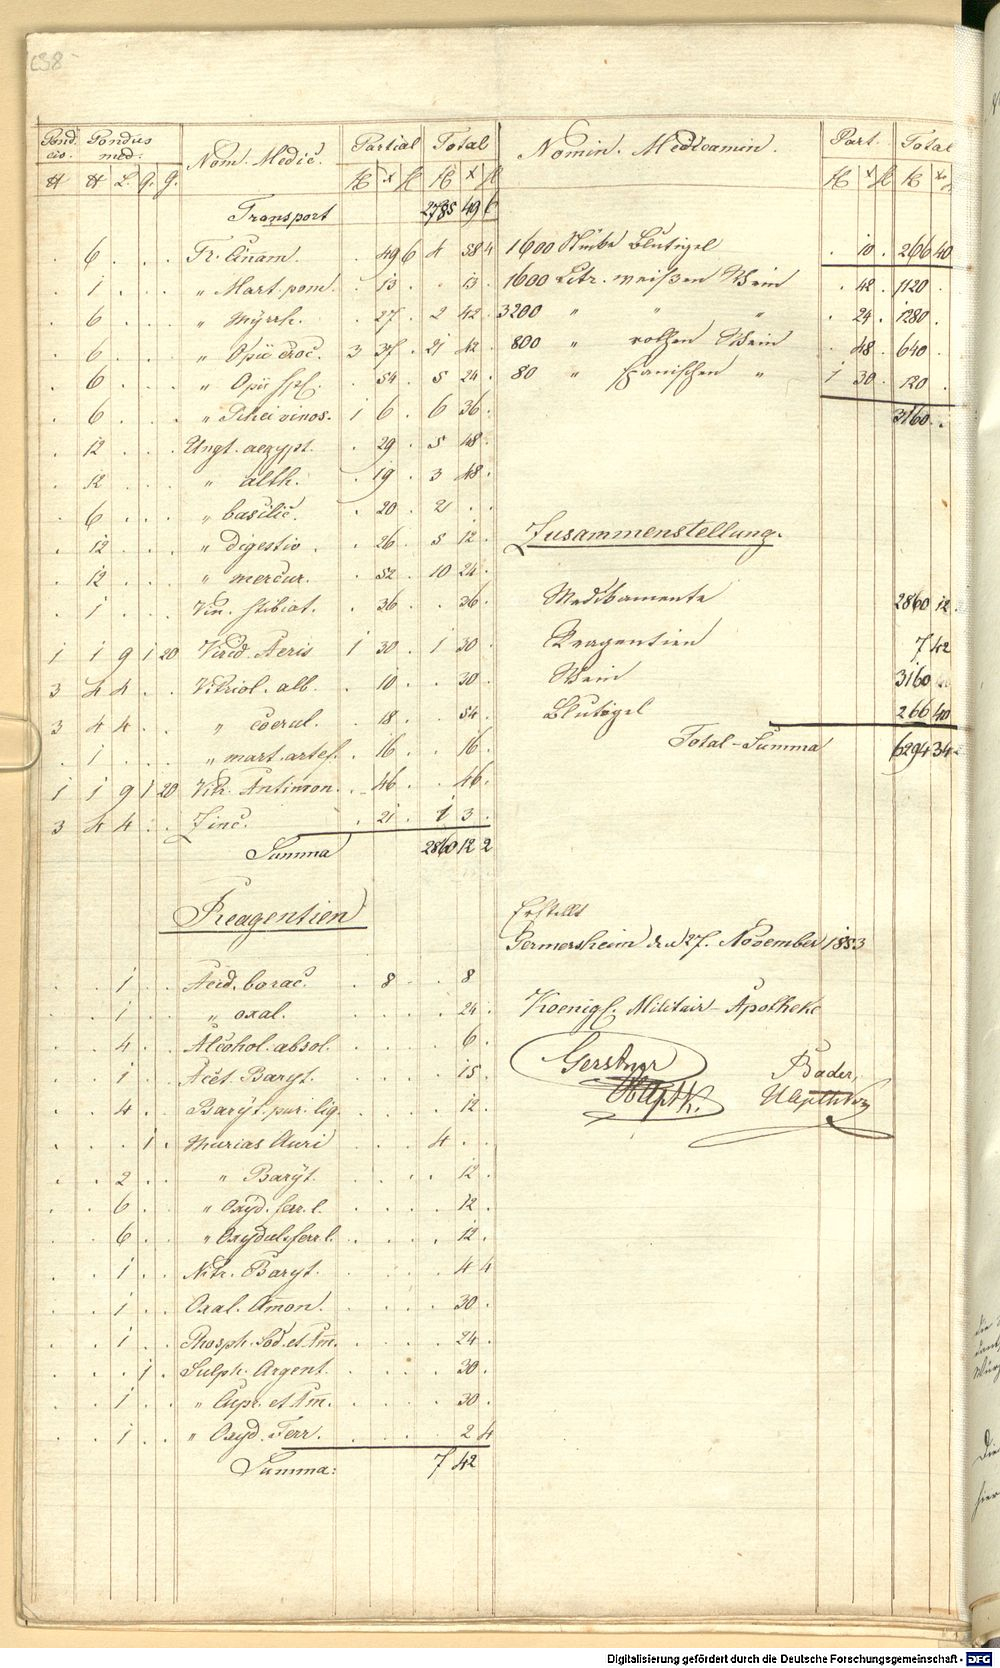 138
Pond. civ. Pondus med. Nom. Medic. Partial Total
℔ ℔ L. q. g. fl x hl fl x hl
Transport 2785 49 6
. 6 . . . Tr. Cinam. . 49 6 4 58 4
. 1 . . . " Mart. pom. . 13 . . 13 .
. 6 . . . " Myrrh. . 27 . 2 42 .
. 6 . . . " Opii croc. 3 37 . 21 42 .
. 6 . . . " Opii spl. . 54 . 5 24 .
. 6 . . . " Rhei vinos. 1 6 . 6 36 .
. 12 . . . Ungt. aegypt. . 29 . 5 48 .
. 12 . . . " alth. . 19 . 3 48 .
. 6 . . . " basilic. . 20 . 2 . .
. 12 . . . " digestiv. . 26 . 5 12 .
. 12 . . . " mercur. . 52 . 10 24 .
. 1 . . . Vin. stibiat. . 36 . . 36 .
1 1 9 1 20 Virid. Aeris 1 30 . 1 30 .
3 4 4 . . Vitriol. alb. . 10 . . 30 .
3 4 4 . . " coerul. . 18 . . 54 .
. 1 . . . " mart. artef. . 16 . . 16 .
1 1 9 1 20 Vitr. Antimon. . 46 . . 46 .
3 4 4 . . Zinc. . 21 . 1 3 .
Summa 2860 12 2
Reagentien
. . 1 . . Acid. borac. . 8 . . 8
. . 1 . . " oxal. . . . . 24 .
. . 4 . . Alcohol. absol. . . . . 6 .
. . 1 . . Acet. Baryt. . . . . 15 .
. . 4 . . Baryt. pur. liq. . . . . 12 .
. . . 1 . Murias Auri . . . 4 . .
. . 2 . . " Baryt. . . . . 12 .
. . 6 . . " Oxyd. ferr. l. . . . . 12 .
. . 6 . . " Oxydul. ferr. l. . . . . 12 .
. . 1 . . Nitr. Baryt. . . . . 4 4
. . 1 . . Oxal. Amon. . . . . 30 .
. . 1 . . Phosph. Sod. et Am. . . . . 24 .
. . . 1 . Sulph. Argent. . . . . 30 .
. . 1 . . " Cupr. et Am. . . . . 30 .
. . 1 . . " Oxyd. Ferr. . . . . 2 4
Summa: 7 42
Nomin. Medicamin. Part. Total
fl x hl fl x
1600 Stücke Blutigel . 10 . 266 40
1600 Litr. weißen Wein . 42 . 1120 .
3200 " " " . 24 . 1280 .
800 " rothen Wein . 48 . 640 .
80 " spanischen " 1 30 . 120 .
3160 . .
Zusammenstellung.
Medikamente 2860 12 .
Reagentien 7 42
Wein 3160
Blutigel 266 40
Total-Summa 6294 34
Erstellt
Germersheim den 27. November 1853
Koenigl. Militair-Apotheke
Gerstner Bader,
OApthk. UApthkr
Digitalisierung gefördert durch die Deutsche Forschungsgemeinschaft - DFG